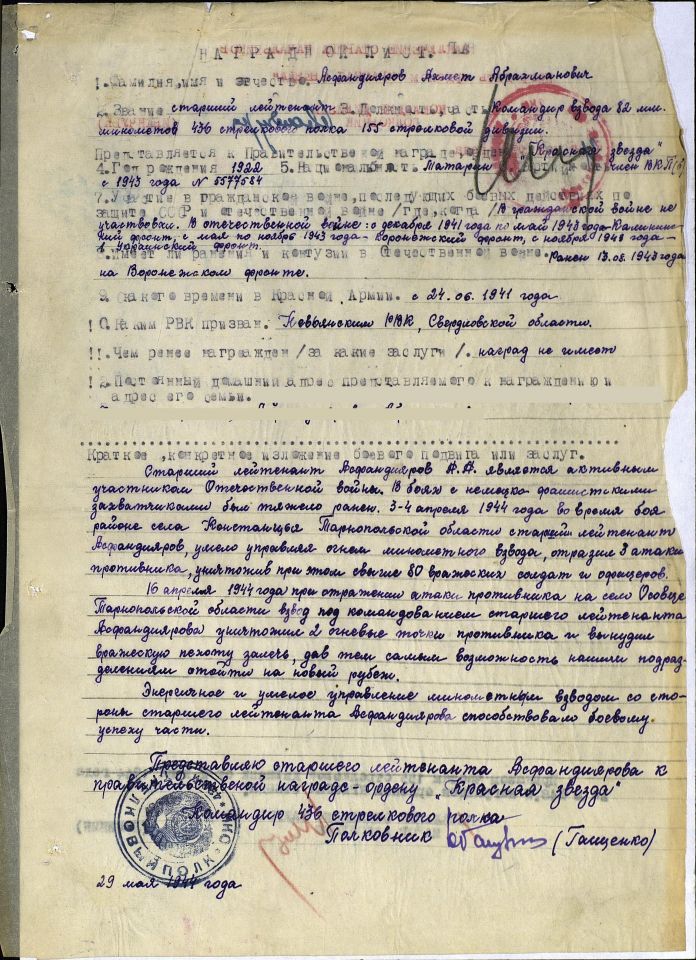 НАГРАДНОЙ ЛИСТ.
1. Фамилия, имя и отчество. Асфандияров Ахмет Абрахманович
2. Звание старший лейтенант 3. Должность, часть Командир взвода 82 мм.
минометов 436 стрелкового полка 155 стрелковой дивизии.
Представляется к Правительственной награде, "Красная звезда"
4. Год рождения 1922 5. Национальность Татарин член ВКП(б)
с 1943 года № 5577584
7. Участие в гражданской войне, последующих боевых действиях по
защите СССР и отечественной войне /Где, когда/ В гражданской войне не
участвовал. В отечественной войне: с декабря 1941 года по май 1943 года-Калинин-
ский фронт, с мая по ноябрь 1943 года-Воронежский фронт, с ноября 1943 года-
1 Украинский фронт.
8. Имеет ли ранения и контузии в Отечественной войне. Ранен 13.08.1943 года
на Воронежском фронте.
9. С какого времени в Красной Армии. с 24.06.1941 года
10. Каким РВК призван. Невьянским РВК, Свердловской области.
11. Чем ранее награжден /за какие заслуги/. наград не имеет
12. Постоянный домашний адрес представляемого к награждению и
адрес его семьи.
Краткое, конкретное изложение боевого подвига или заслуг.
Старший лейтенант Асфандияров А.А. является активным
участником Отечественной войны. В боях с немецко-фашистскими
захватчиками был тяжело ранен. 3-4 апреля 1944 года во время боя
районе села Констанцья Тарнопольской области старший лейтенант
Асфандияров, умело управляя огнем минометного взвода, отразил 3 атаки
противника, уничтожив при этом свыше 80 вражеских солдат и офицеров.
16 апреля 1944 года при отражении атаки противника на село Осовце
Тарнопольской области взвод под командованием старшего лейтенанта
Асфандиярова уничтожил 2 огневые точки противника и вынудил
вражескую пехоту залечь, дав тем самым возможность нашим подраз-
делениям отойти на новый рубеж.
Энергичное и умелое управление минометным взводом со сто-
роны старшего лейтенанта Асфандиярова способствовало боевому
успеху части.
Представляю старшего лейтенанта Асфандиярова к
правительственной награде-ордену "Красная звезда"
Командир 436 стрелкового полка
Полковник (Гащенко)
29 мая 1944 года